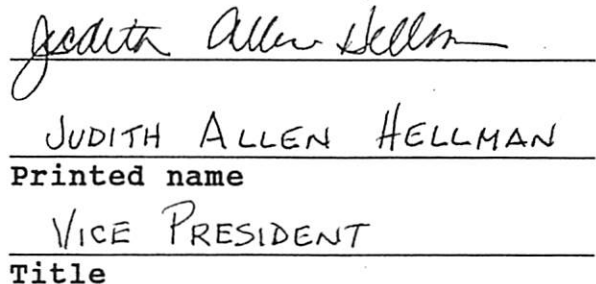 Judith Allen Hellman
JUDITH ALLEN HELLMAN
Printed name
VICE PRESIDENT
Title